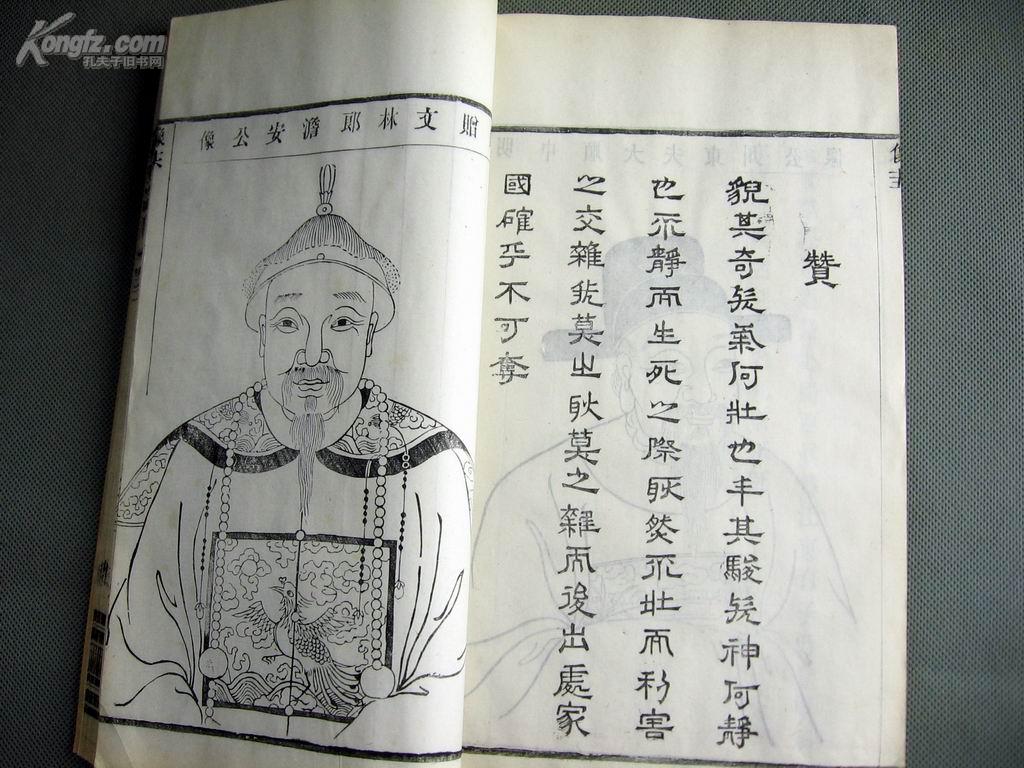 Kongfz.com
孔夫子旧书网
贊
貌其奇矣氣何壯也丰其駿矣神何靜
也不靜而生死之際耿然不壯而利害
之交雜然莫之耿莫之雜而後出處家
國確乎不可奪
贈文林郎澹安公像